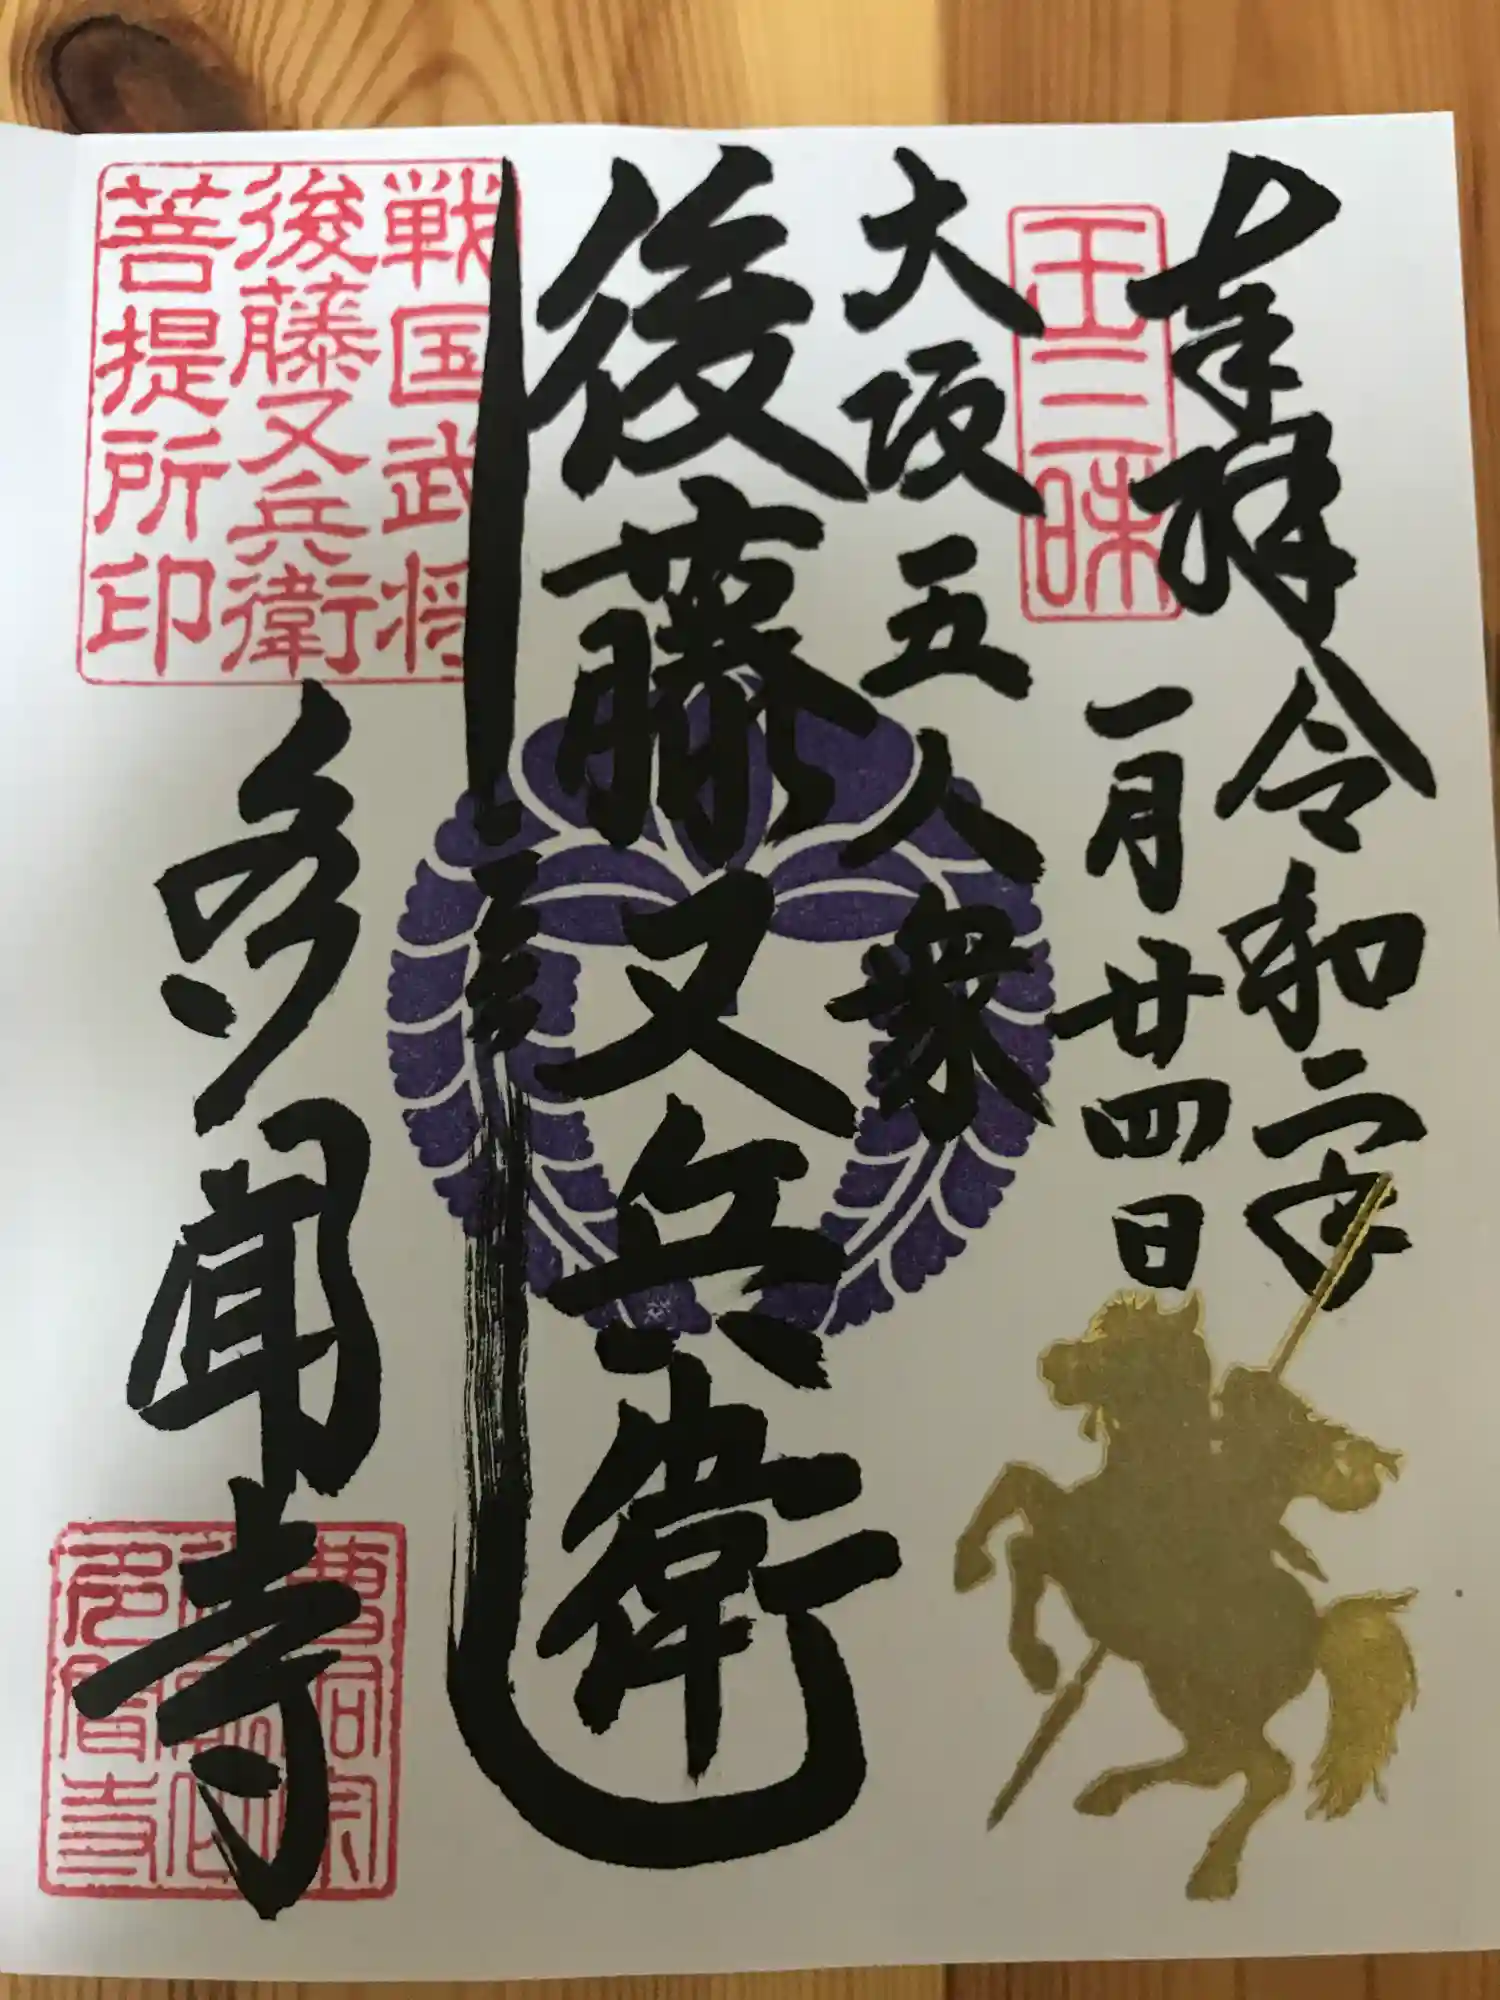 奉拝
令和二年
一月廿四日
王三昧
大坂五人衆
後藤又兵衛
戦国武将
後藤又兵衛
菩提所印
多聞寺
曹洞宗
多聞寺